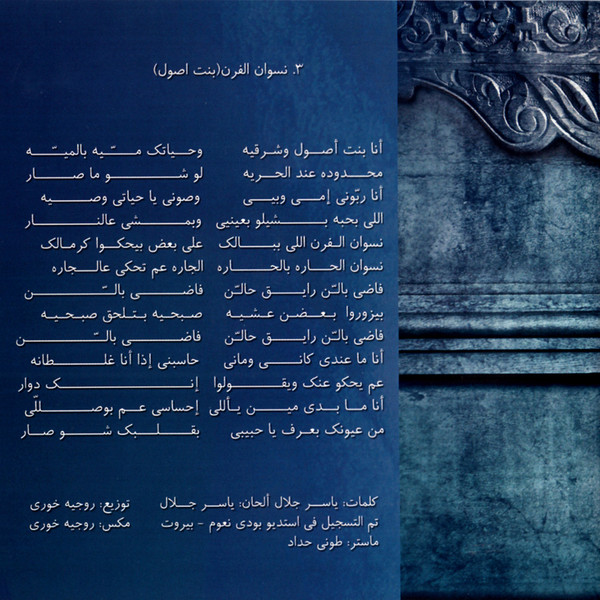 ٣. نسوان الفرن(بنت اصول)
أنا بنت أصول وشرقيه وحياتك ميّه بالميّه
محدوده عند الحريه لو شو ما صار
أنا ربّونى إمى وبيى وصونى يا حياتى وصيه
اللى بحبه بشيلو بعينيى وبمشى عالنار
نسوان الفرن اللى ببالك على بعض بيحكوا كرمالك
نسوان الحاره بالحاره الجاره عم تحكى عالجاره
فاضى بالّن رايق حالّن فاضى بالّن
بيزوروا بعضن عشيه صبحيه بتلحق صبحيه
فاضى بالّن رايق حالّن فاضى بالّن
أنا ما عندى كانى ومانى حاسبنى إذا أنا غلطانه
عم يحكو عنك ويقولوا إنك دوار
أنا ما بدى مين يأللى إحساسى عم بوصللّى
من عيونك بعرف يا حبيبى بقلبك شو صار
كلمات: ياسر جلال ألحان: ياسر جلال توزيع: روجيه خورى
تم التسجيل فى استديو بودى نعوم - بيروت مكس: روجيه خورى
ماستر: طونى حداد